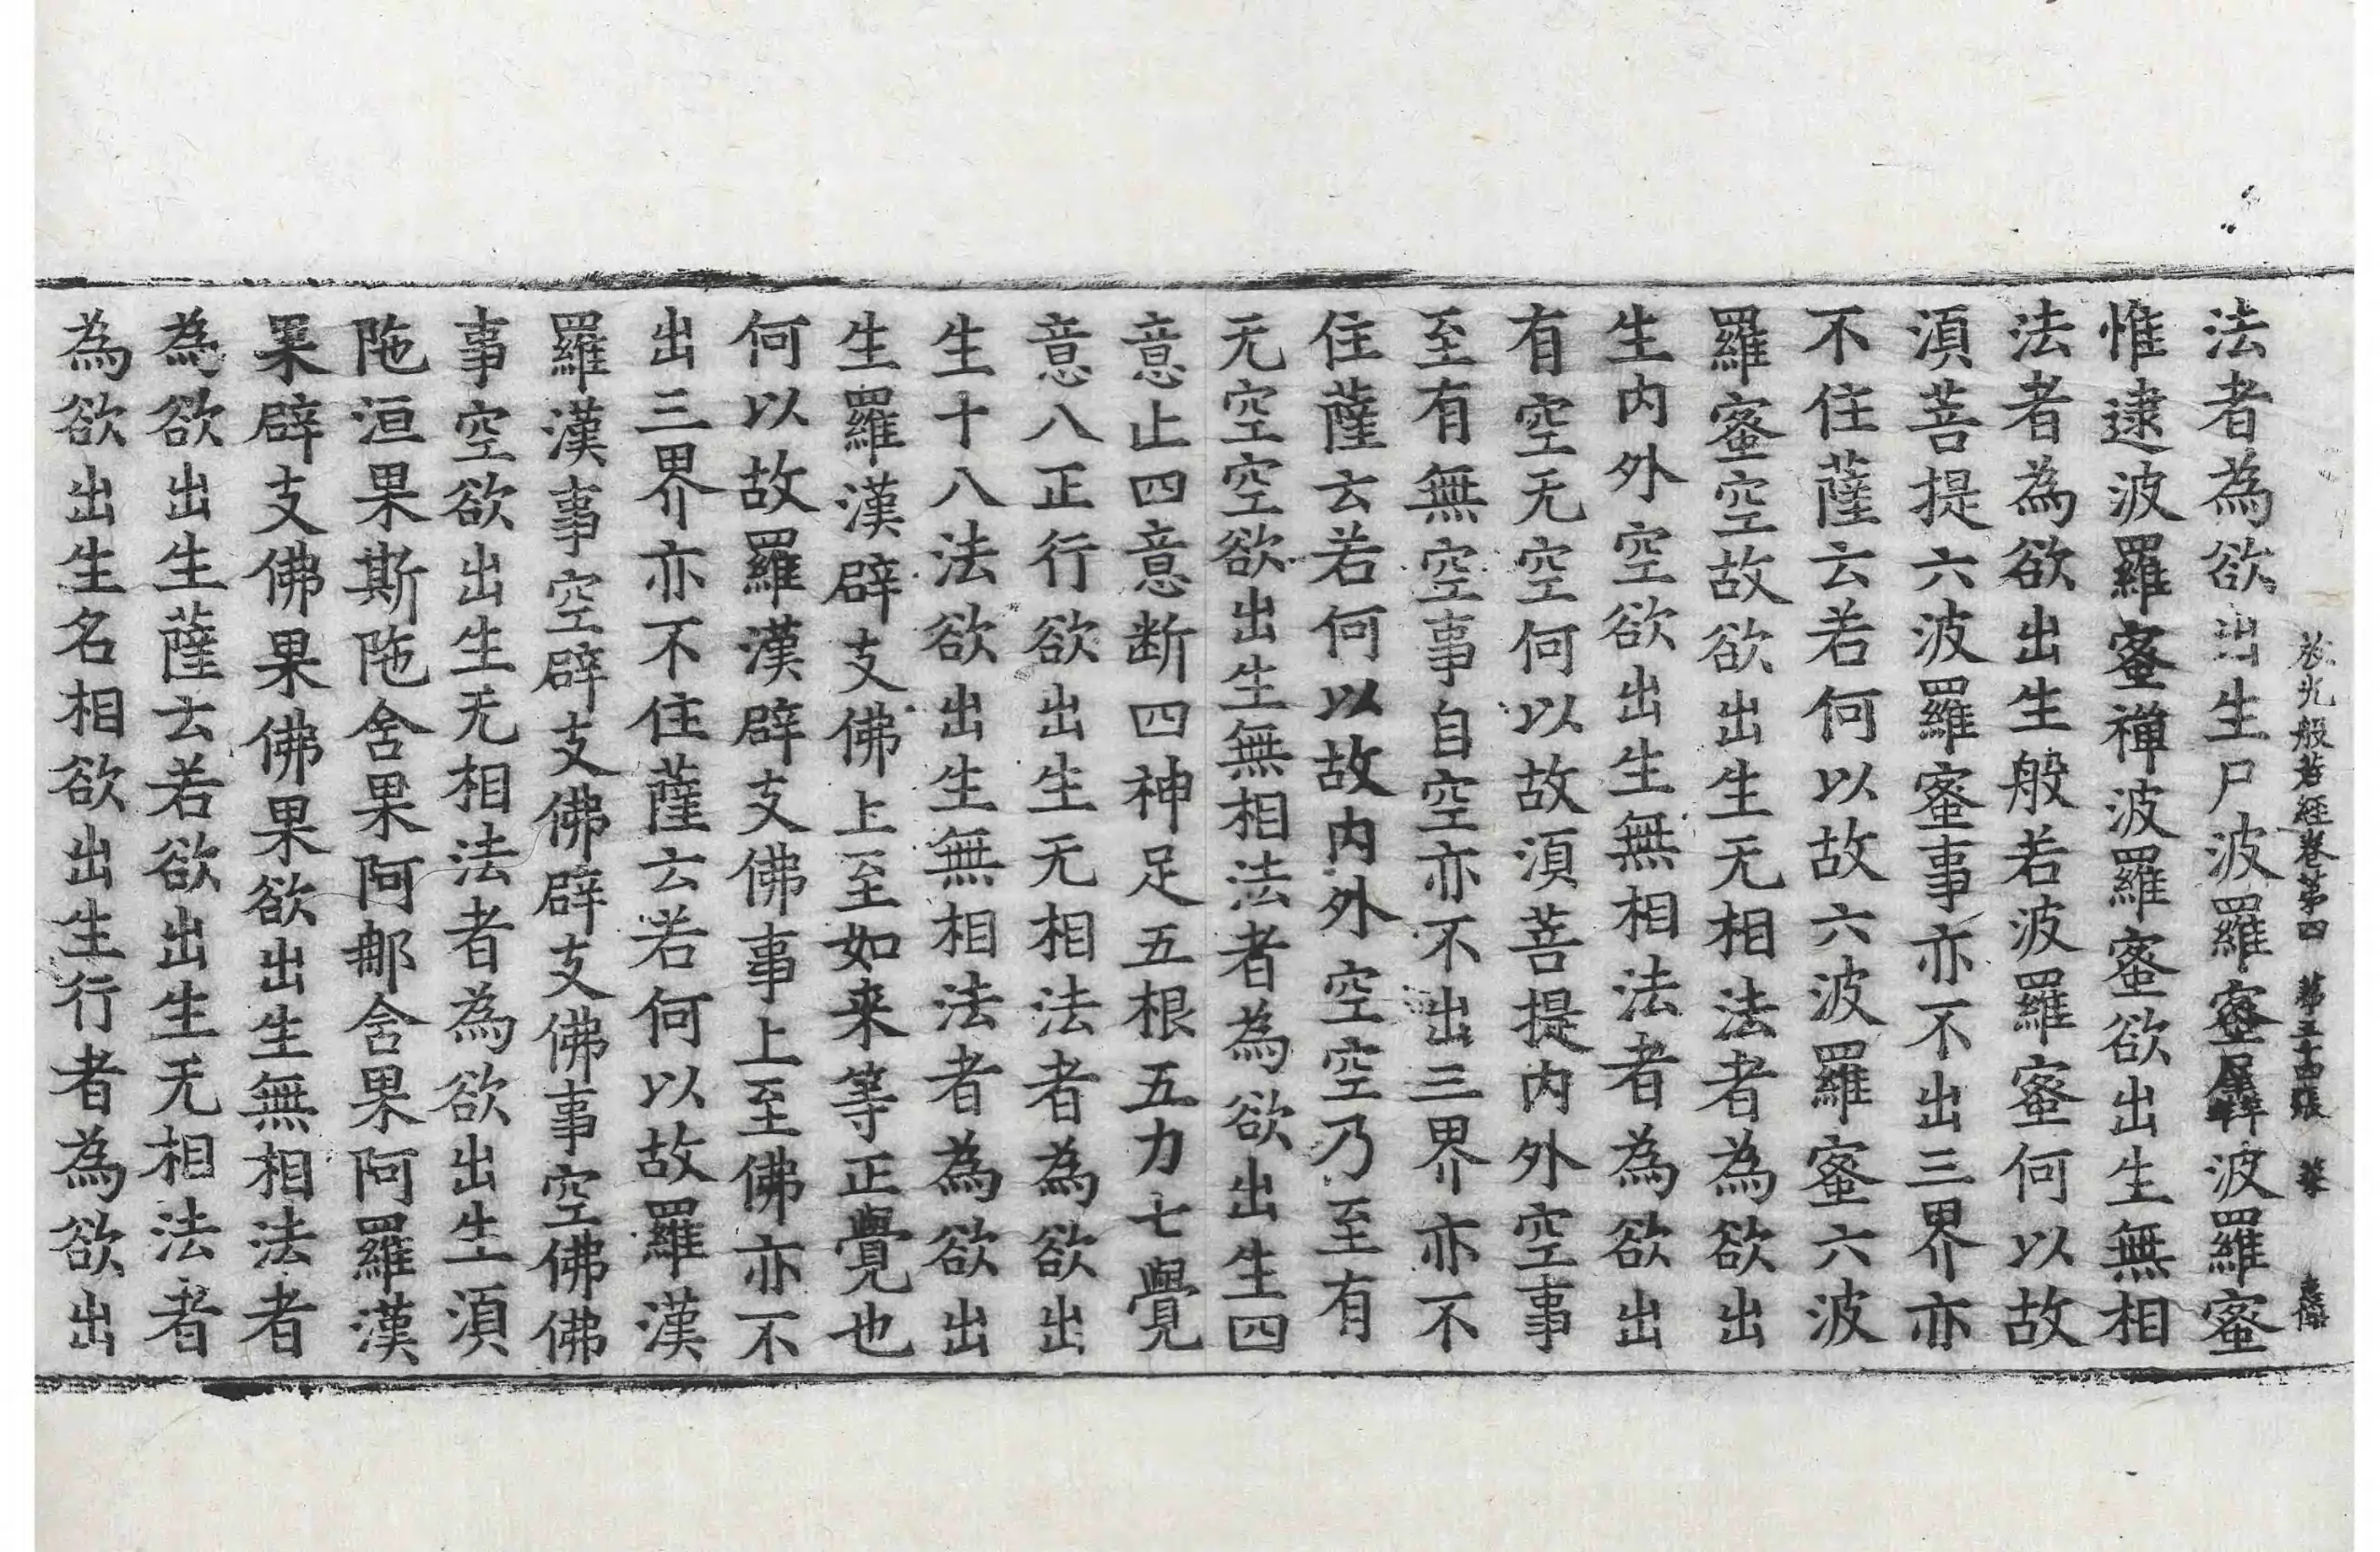 放光般若經卷第四 第三十四張 菜
法者為欲出生尸波羅蜜羼波羅蜜
惟逮波羅蜜禪波羅蜜欲出生無相
法者為欲出生般若波羅蜜何以故
湏菩提六波羅蜜事亦不出三界亦
不住薩云若何以故六波羅蜜六波
羅蜜空故欲出生无相法者為欲出
生内外空欲出生無相法者為欲出
有空无空何以故湏菩提内外空事
至有無空事自空亦不出三界亦不
住薩云若何以故内外空空乃至有
无空空欲出生無相法者為欲出生四
意止四意断四神足五根五力七覺
意八正行欲出生无相法者為欲出
生十八法欲出生無相法者為欲出
生羅漢辟支佛上至如来等正覺也
何以故羅漢辟支佛事上至佛亦不
出三界亦不住薩云若何以故羅漢
羅漢事空辟支佛辟支佛事空佛佛
事空欲出生无相法者為欲出生湏
陁洹果斯陁含果阿那含果阿羅漢
果辟支佛果佛果欲出生無相法者
為欲出生薩云若欲出生无相法者
為欲出生名相欲出生行者為欲出